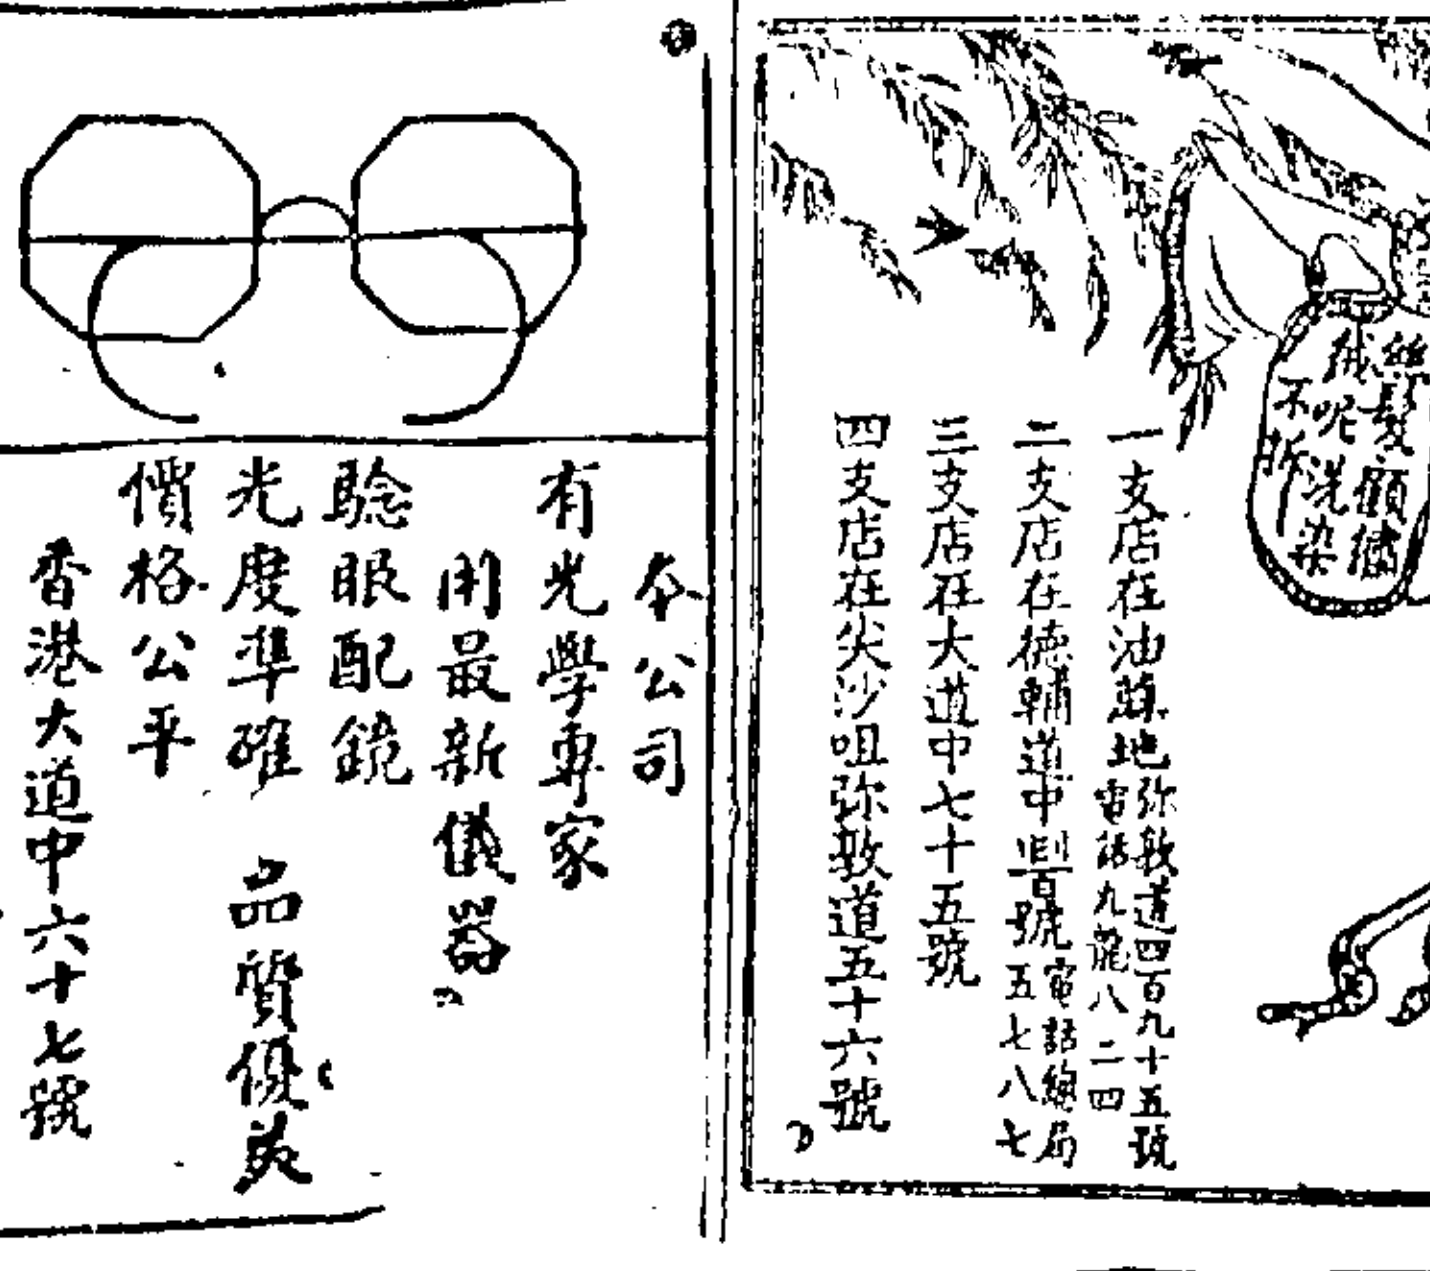 絲髮顧繡
絨呢洗染
不折
一支店在油蔴地弥敦道四百九十五號
電話九龍八二四
二支店在德輔道中 號電話總局
五七八七
三支店在大道中七十五號
四支店在尖沙咀弥敦道五十六號
本公司
有光學專家
用最新儀器
騐眼配鏡
光度準確 品質優美
價格公平
香港大道中六十七號